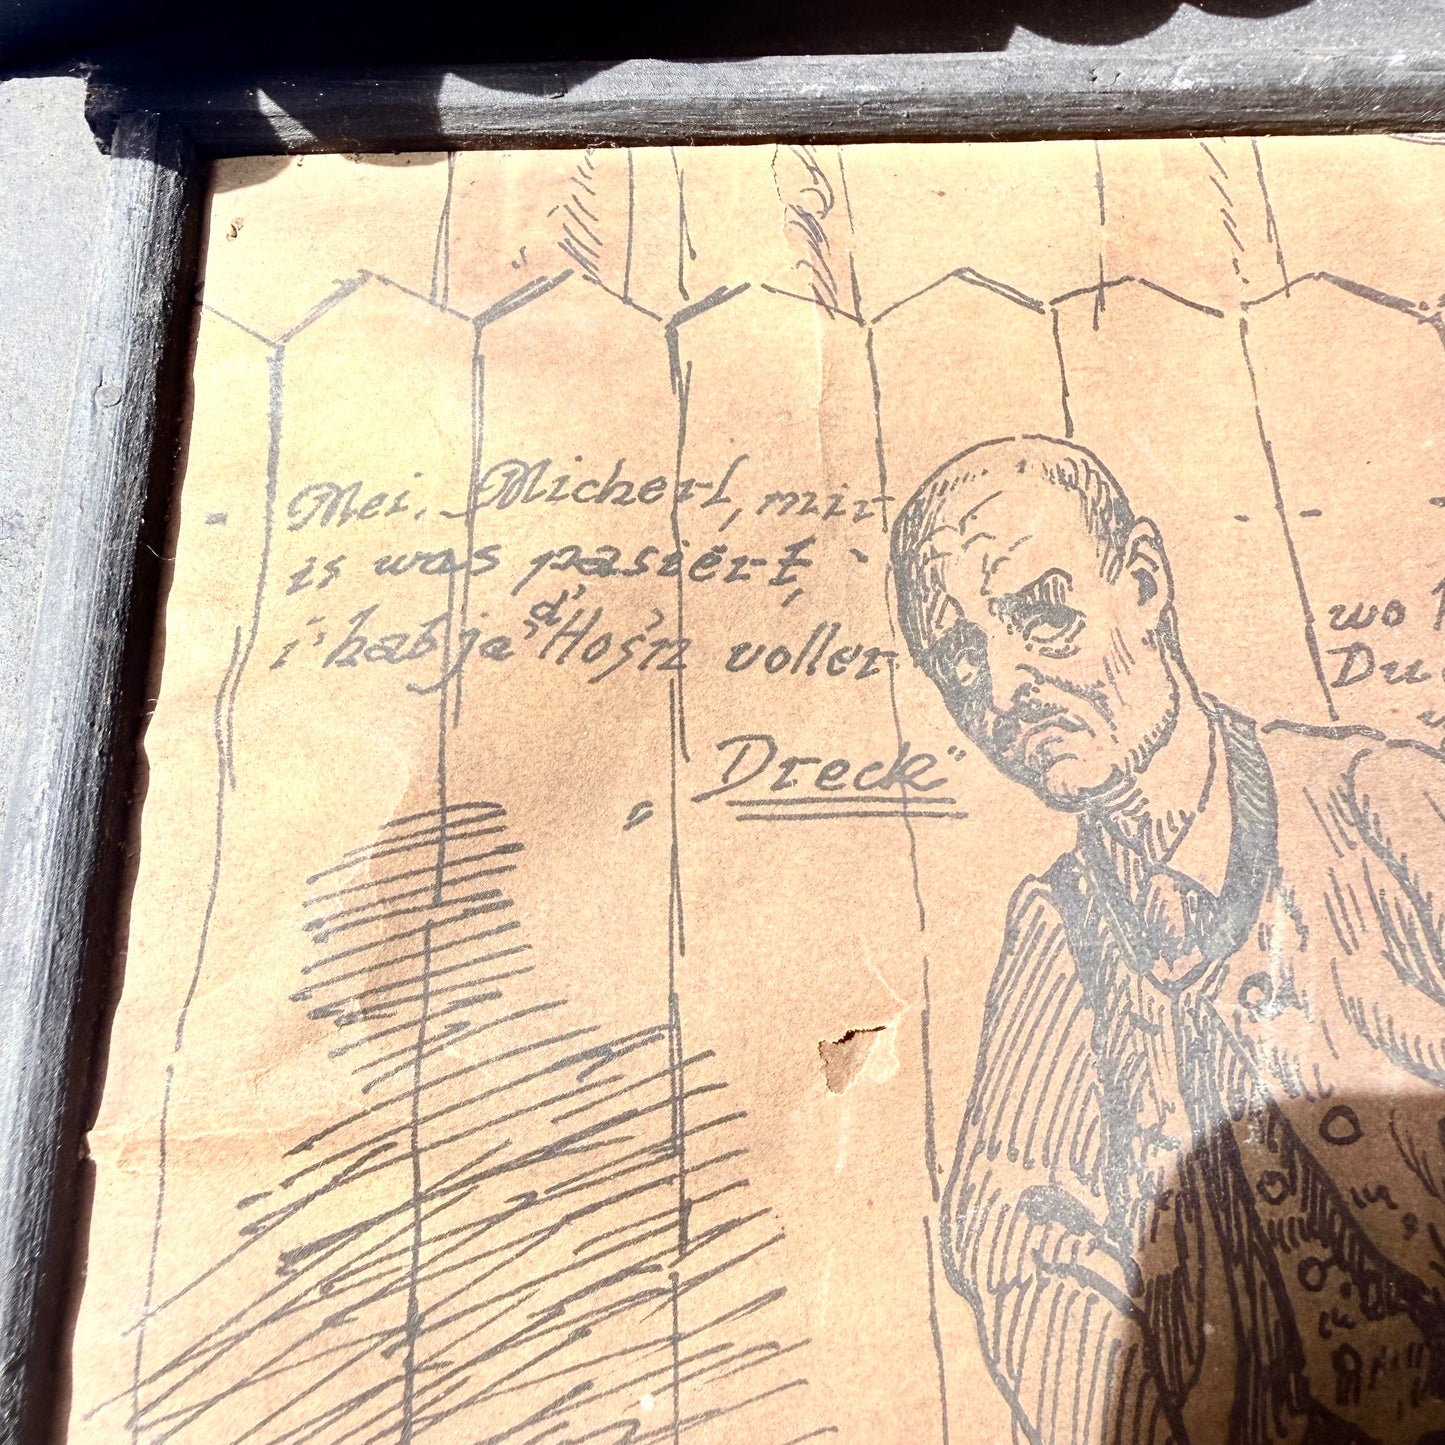 - Mei, Micherl, mir
is was pasiërt,
i' hab ja' d' Hos'n voller
"Dreck"
wo
Du